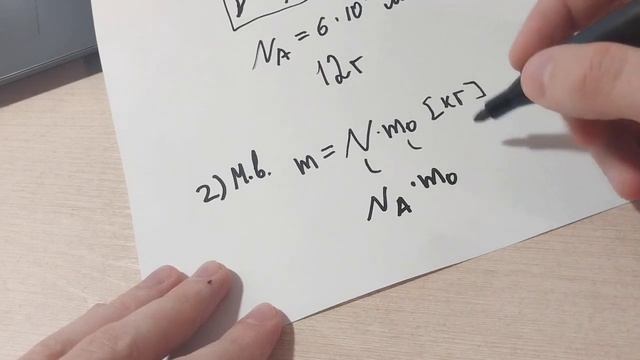 N_A = 6 · 10
12г
2) М.в. m = N · m₀ [кг]
N_A · m₀